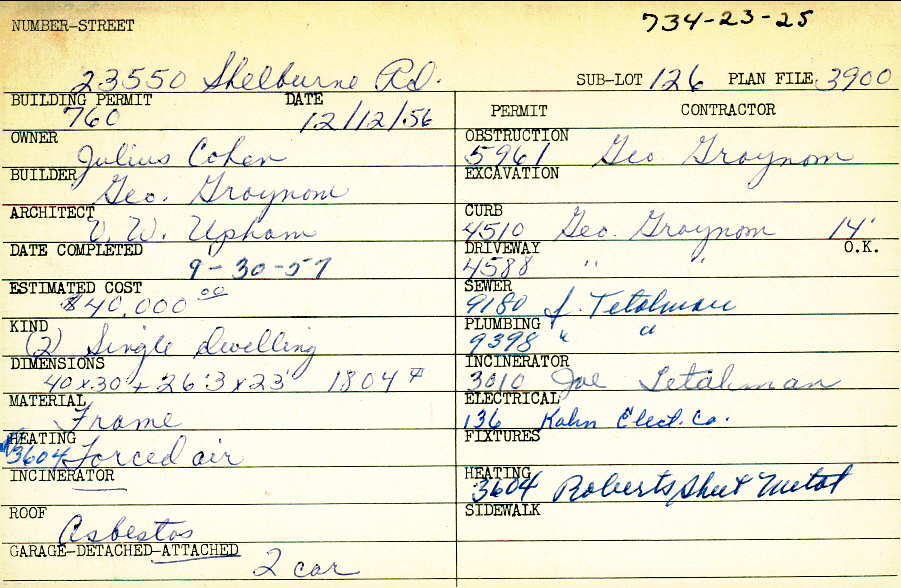 734-23-25
NUMBER-STREET
23550 Shelburne Rd. SUB-LOT 126 PLAN FILE 3900
BUILDING PERMIT DATE
760 12/12/56
OWNER
Julius Cohen
BUILDER
Geo. Graynom
ARCHITECT
V. W. Upham
DATE COMPLETED
9-30-57
ESTIMATED COST
$40,000 00
KIND
(2) Single dwelling
DIMENSIONS
40x30' + 26'3 x 23' 1804 #
MATERIAL
Frame
HEATING
3604 Forced air
INCINERATOR
ROOF
Asbestos
GARAGE-DETACHED-ATTACHED
2 car
PERMIT CONTRACTOR
OBSTRUCTION
5961 Geo Graynom
EXCAVATION
CURB
4510 Geo. Graynom 14'
DRIVEWAY O.K.
4588 " "
SEWER
9180 J. Tetalman
PLUMBING
9398 " "
INCINERATOR
3010 Joe Tetalman
ELECTRICAL
136 Kahn Elect. Co.
FIXTURES
HEATING
3604 Roberts Sheet Metal
SIDEWALK